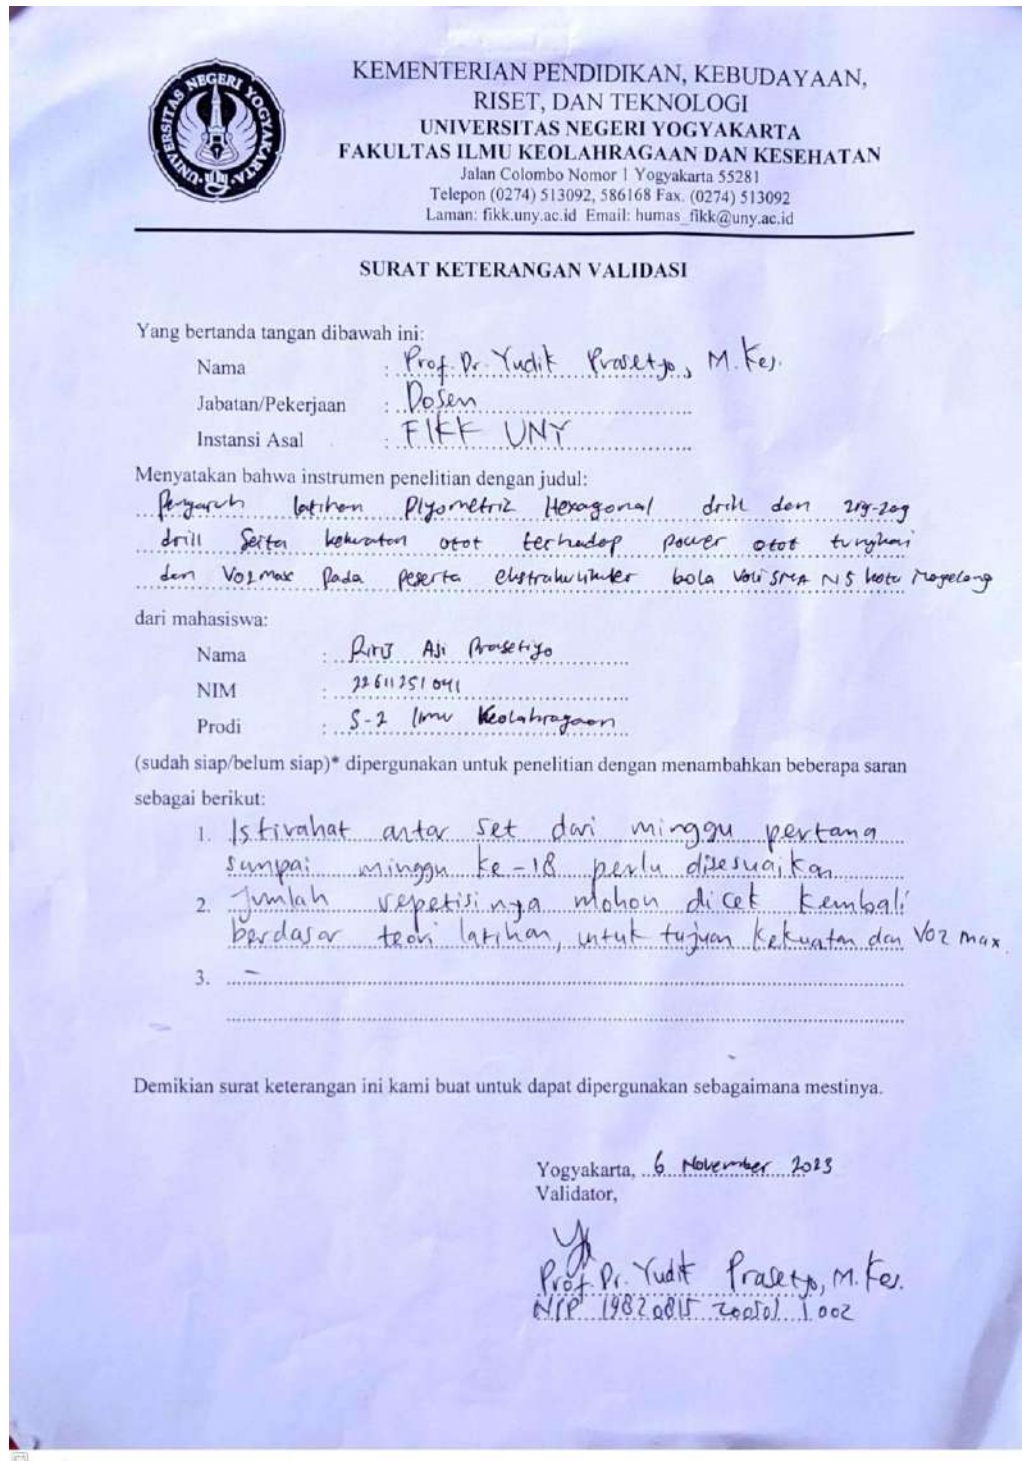 UNIVERSITAS NEGERI YOGYAKARTA
· UNY ·
KEMENTERIAN PENDIDIKAN, KEBUDAYAAN,
RISET, DAN TEKNOLOGI
UNIVERSITAS NEGERI YOGYAKARTA
FAKULTAS ILMU KEOLAHRAGAAN DAN KESEHATAN
Jalan Colombo Nomor 1 Yogyakarta 55281
Telepon (0274) 513092, 586168 Fax. (0274) 513092
Laman: fikk.uny.ac.id Email: humas_fikk@uny.ac.id
SURAT KETERANGAN VALIDASI
Yang bertanda tangan dibawah ini:
Nama : Prof. Dr. Yudik Prasetyo, M. Kes.
Jabatan/Pekerjaan : Dosen
Instansi Asal : FIKK UNY
Menyatakan bahwa instrumen penelitian dengan judul:
Pengaruh latihan Plyometric Hexagonal drill dan zig-zag
drill Serta kekuatan otot terhadap power otot tungkai
dan VO2Max pada peserta ekstrakulikuler bola voli SMA N 5 kota Magelang
dari mahasiswa:
Nama : Aji Prasetiyo
NIM : 22611251041
Prodi : S-2 Ilmu Keolahragaan
(sudah siap/belum siap)* dipergunakan untuk penelitian dengan menambahkan beberapa saran
sebagai berikut:
1. Istirahat antar set dari minggu pertama
sampai minggu ke-18 perlu disesuaikan
2. Jumlah repetisinya mohon dicek kembali
berdasar teori latihan, untuk tujuan kekuatan dan VO2 max.
3. –
Demikian surat keterangan ini kami buat untuk dapat dipergunakan sebagaimana mestinya.
Yogyakarta, 6 November 2023
Validator,
Prof. Dr. Yudik Prasetyo, M. Kes.
NIP 19820815 200501 1 002